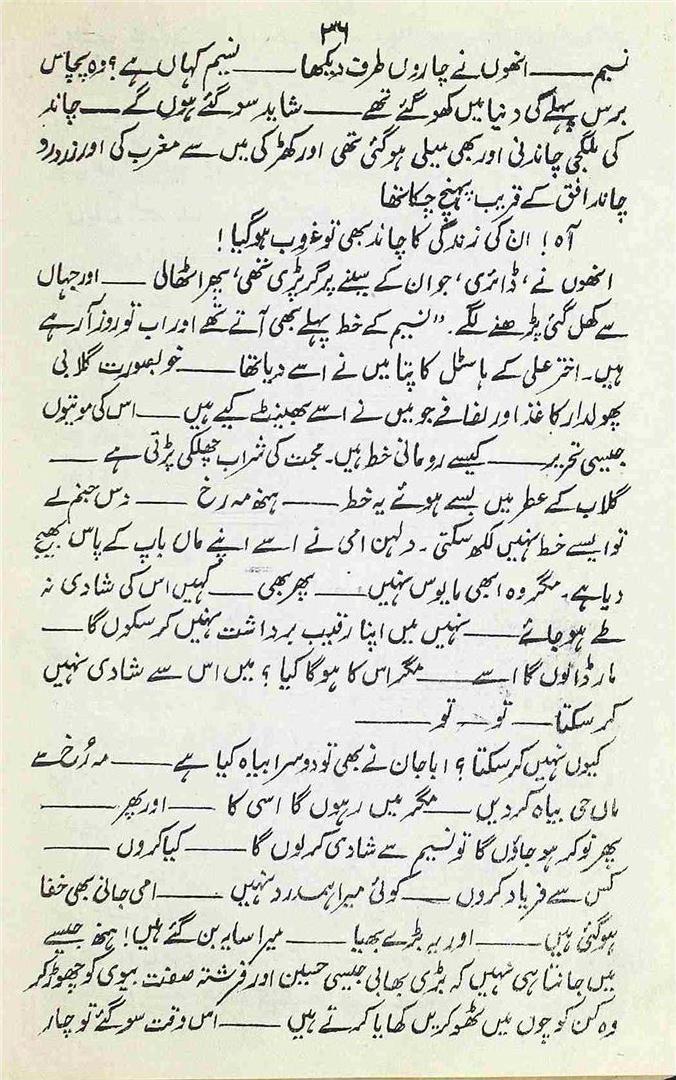 ۳۶
نسیم ——— انھوں نے چاروں طرف دیکھا ——— نسیم کہاں ہے؟ وہ پچاس
برس پہلے کی دنیا میں کھو گئے تھے ——— شاید سو گئے ہوں گے ——— چاند
کی ملگجی چاندنی اور بھی میلی ہو گئی تھی اور کھڑکی میں سے مغرب کی اور زرد رو
چاند افق کے قریب پہنچ چکا تھا
آہ! ان کی زندگی کا چاند بھی تو غروب ہو گیا!
انھوں نے ’ڈائری‘، جو ان کے سینے پر گر پڑی تھی، پھر اٹھالی ——— اور جہاں
سے کھل گئی پڑھنے لگے۔ "نسیم کے خط پہلے بھی آتے تھے اور اب تو روز آرہے
ہیں۔ اختر علی کے ہاسٹل کا پتا میں نے اسے دیا تھا ——— خوبصورت گلابی
پھولدار کاغذ اور لفافے جو میں نے اسے بھینٹ کیے ہیں ——— اس کی موتیوں
جیسی تحریر ——— کیسے رومانی خط ہیں۔ محبت کی شراب چھلکی پڑتی ہے ———
گلاب کے عطر میں بسے ہوئے یہ خط ——— ہنھ مہ رخ ——— دس جنم لے
تو ایسے خط نہیں لکھ سکتی۔ دلہن امی نے اسے اپنے ماں باپ کے پاس بھیج
دیا ہے۔ مگر وہ ابھی مایوس نہیں ——— پھر بھی ——— کہیں اس کی شادی نہ
طے ہو جائے ——— نہیں میں اپنا رقیب برداشت نہیں کر سکوں گا ———
مار ڈالوں گا اسے ——— مگر اس کا ہوگا کیا؟ میں اس سے شادی نہیں
کر سکتا ——— تو ——— تو ———
کیوں نہیں کر سکتا؟ ابا جان نے بھی تو دوسرا بیاہ کیا ہے ——— مہ رُخ سے
ماں جی بیاہ کر دیں ——— مگر میں رہوں گا اسی کا ——— اور پھر ———
پھر نوکر ہو جاؤں گا تو نسیم سے شادی کرلوں گا ——— کیا کروں ———
کس سے فریاد کروں ——— کوئی میرا ہمدرد نہیں ——— امی جانی بھی خفا
ہو گئی ہیں ——— اور یہ بڑے بھیا ——— میرا سایہ بن گئے ہیں! ہنھ جیسے
میں جانتا ہی نہیں کہ بڑی بھابی جیسی حسین اور فرشتہ صفت بیوی کو چھوڑ کر
وہ کن کوچوں میں ٹھوکریں کھایا کرتے ہیں ——— اس وقت سو گئے تو چار